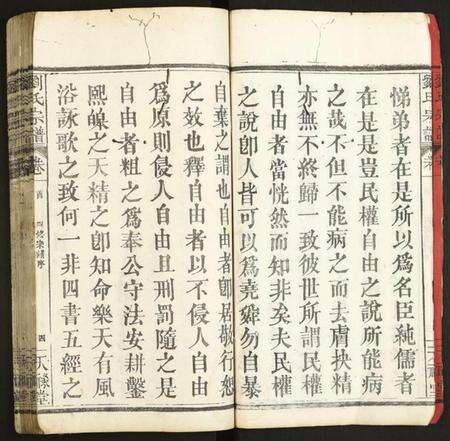 悌弟者在是所以爲名臣純儒者
在是是豈民權自由之說所能病
之哉不但不能病之而去膚抉精
亦無不終歸一致彼世所謂民權
自由者當恍然而知非矣夫民權
之說卽人皆可以爲堯舜勿自暴
自棄之謂也自由者卽居敬行恕
之效也釋自由者以不侵人自由
爲原則侵人自由且刑罰隨之是
自由者粗之爲奉公守法安耕鑿
熙皥之天精之卽知命樂天有風
浴詠歌之致何一非四書五經之
劉氏宗譜 卷
四